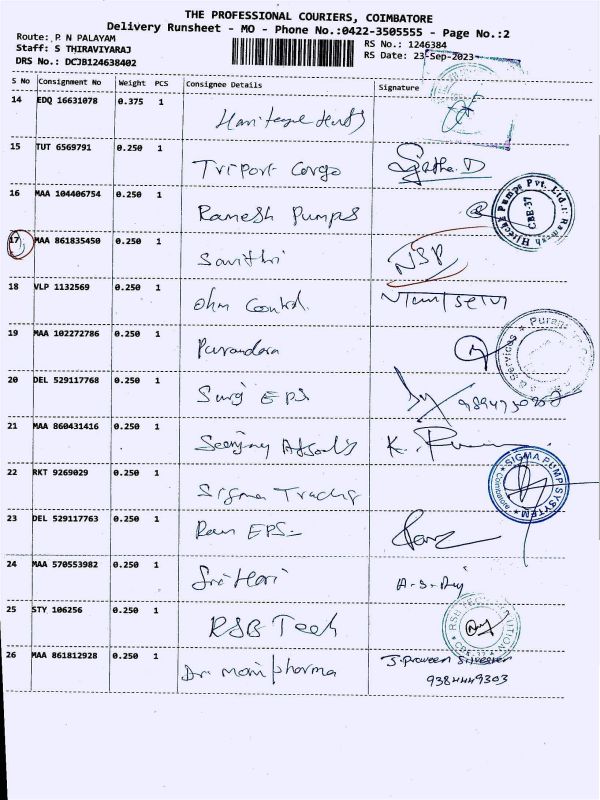 THE PROFESSIONAL COURIERS, COIMBATORE
Delivery Runsheet - MO - Phone No.:0422-3505555 - Page No.:2
Route: P N PALAYAM
RS No.: 1246384
Staff: S THIRAVIYARAJ
RS Date: 23-Sep-2023
DRS No.: DCJB124638402
S No Consignment No Weight PCS Consignee Details Signature
14 EDQ 16631078 0.375 1
15 TUT 6569791 0.250 1 Triport Cargo
16 MAA 104406754 0.250 1 Ramesh Pumps
CBE-37
17 MAA 861835450 0.250 1 Savithri NSP
18 VLP 1132569 0.250 1 Ohm Control
19 MAA 102272786 0.250 1 Purandara
20 DEL 529117768 0.250 1 EPS
21 MAA 860431416 0.250 1 K.
22 RKT 9269029 0.250 1 Sigma Trading
SIGMA PUMP SYSTEM
23 DEL 529117763 0.250 1 Ram EPS
24 MAA 570553982 0.250 1 Sri Hari
25 STY 106256 0.250 1 RSB Tech
26 MAA 861812928 0.250 1 Dr mani pharma J. Praveen Silvester
9384449303